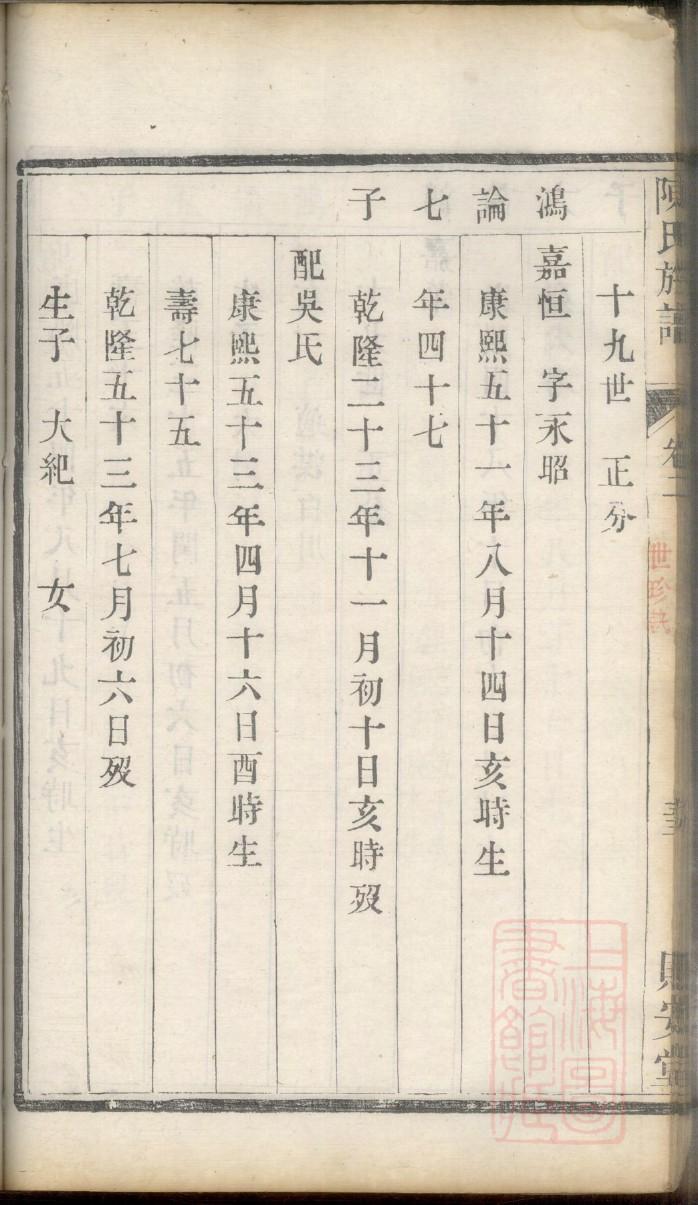 陳氏族譜
卷二
十九世 正分
鴻 嘉恒 字永昭
論 康熙五十一年八月十四日亥時生
七 年四十七
子 乾隆二十三年十一月初十日亥時歿
配吳氏
康熙五十三年四月十六日酉時生
壽七十五
乾隆五十三年七月初六日歿
生子 大紀 女
上海圖
書館藏